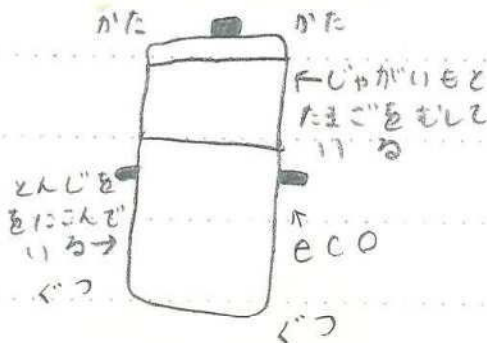 かた
かた
←じゃがいもと
たまごをむして
いる
とんじを
をにこんで
いる→
↑
eco
ぐつ
ぐつ